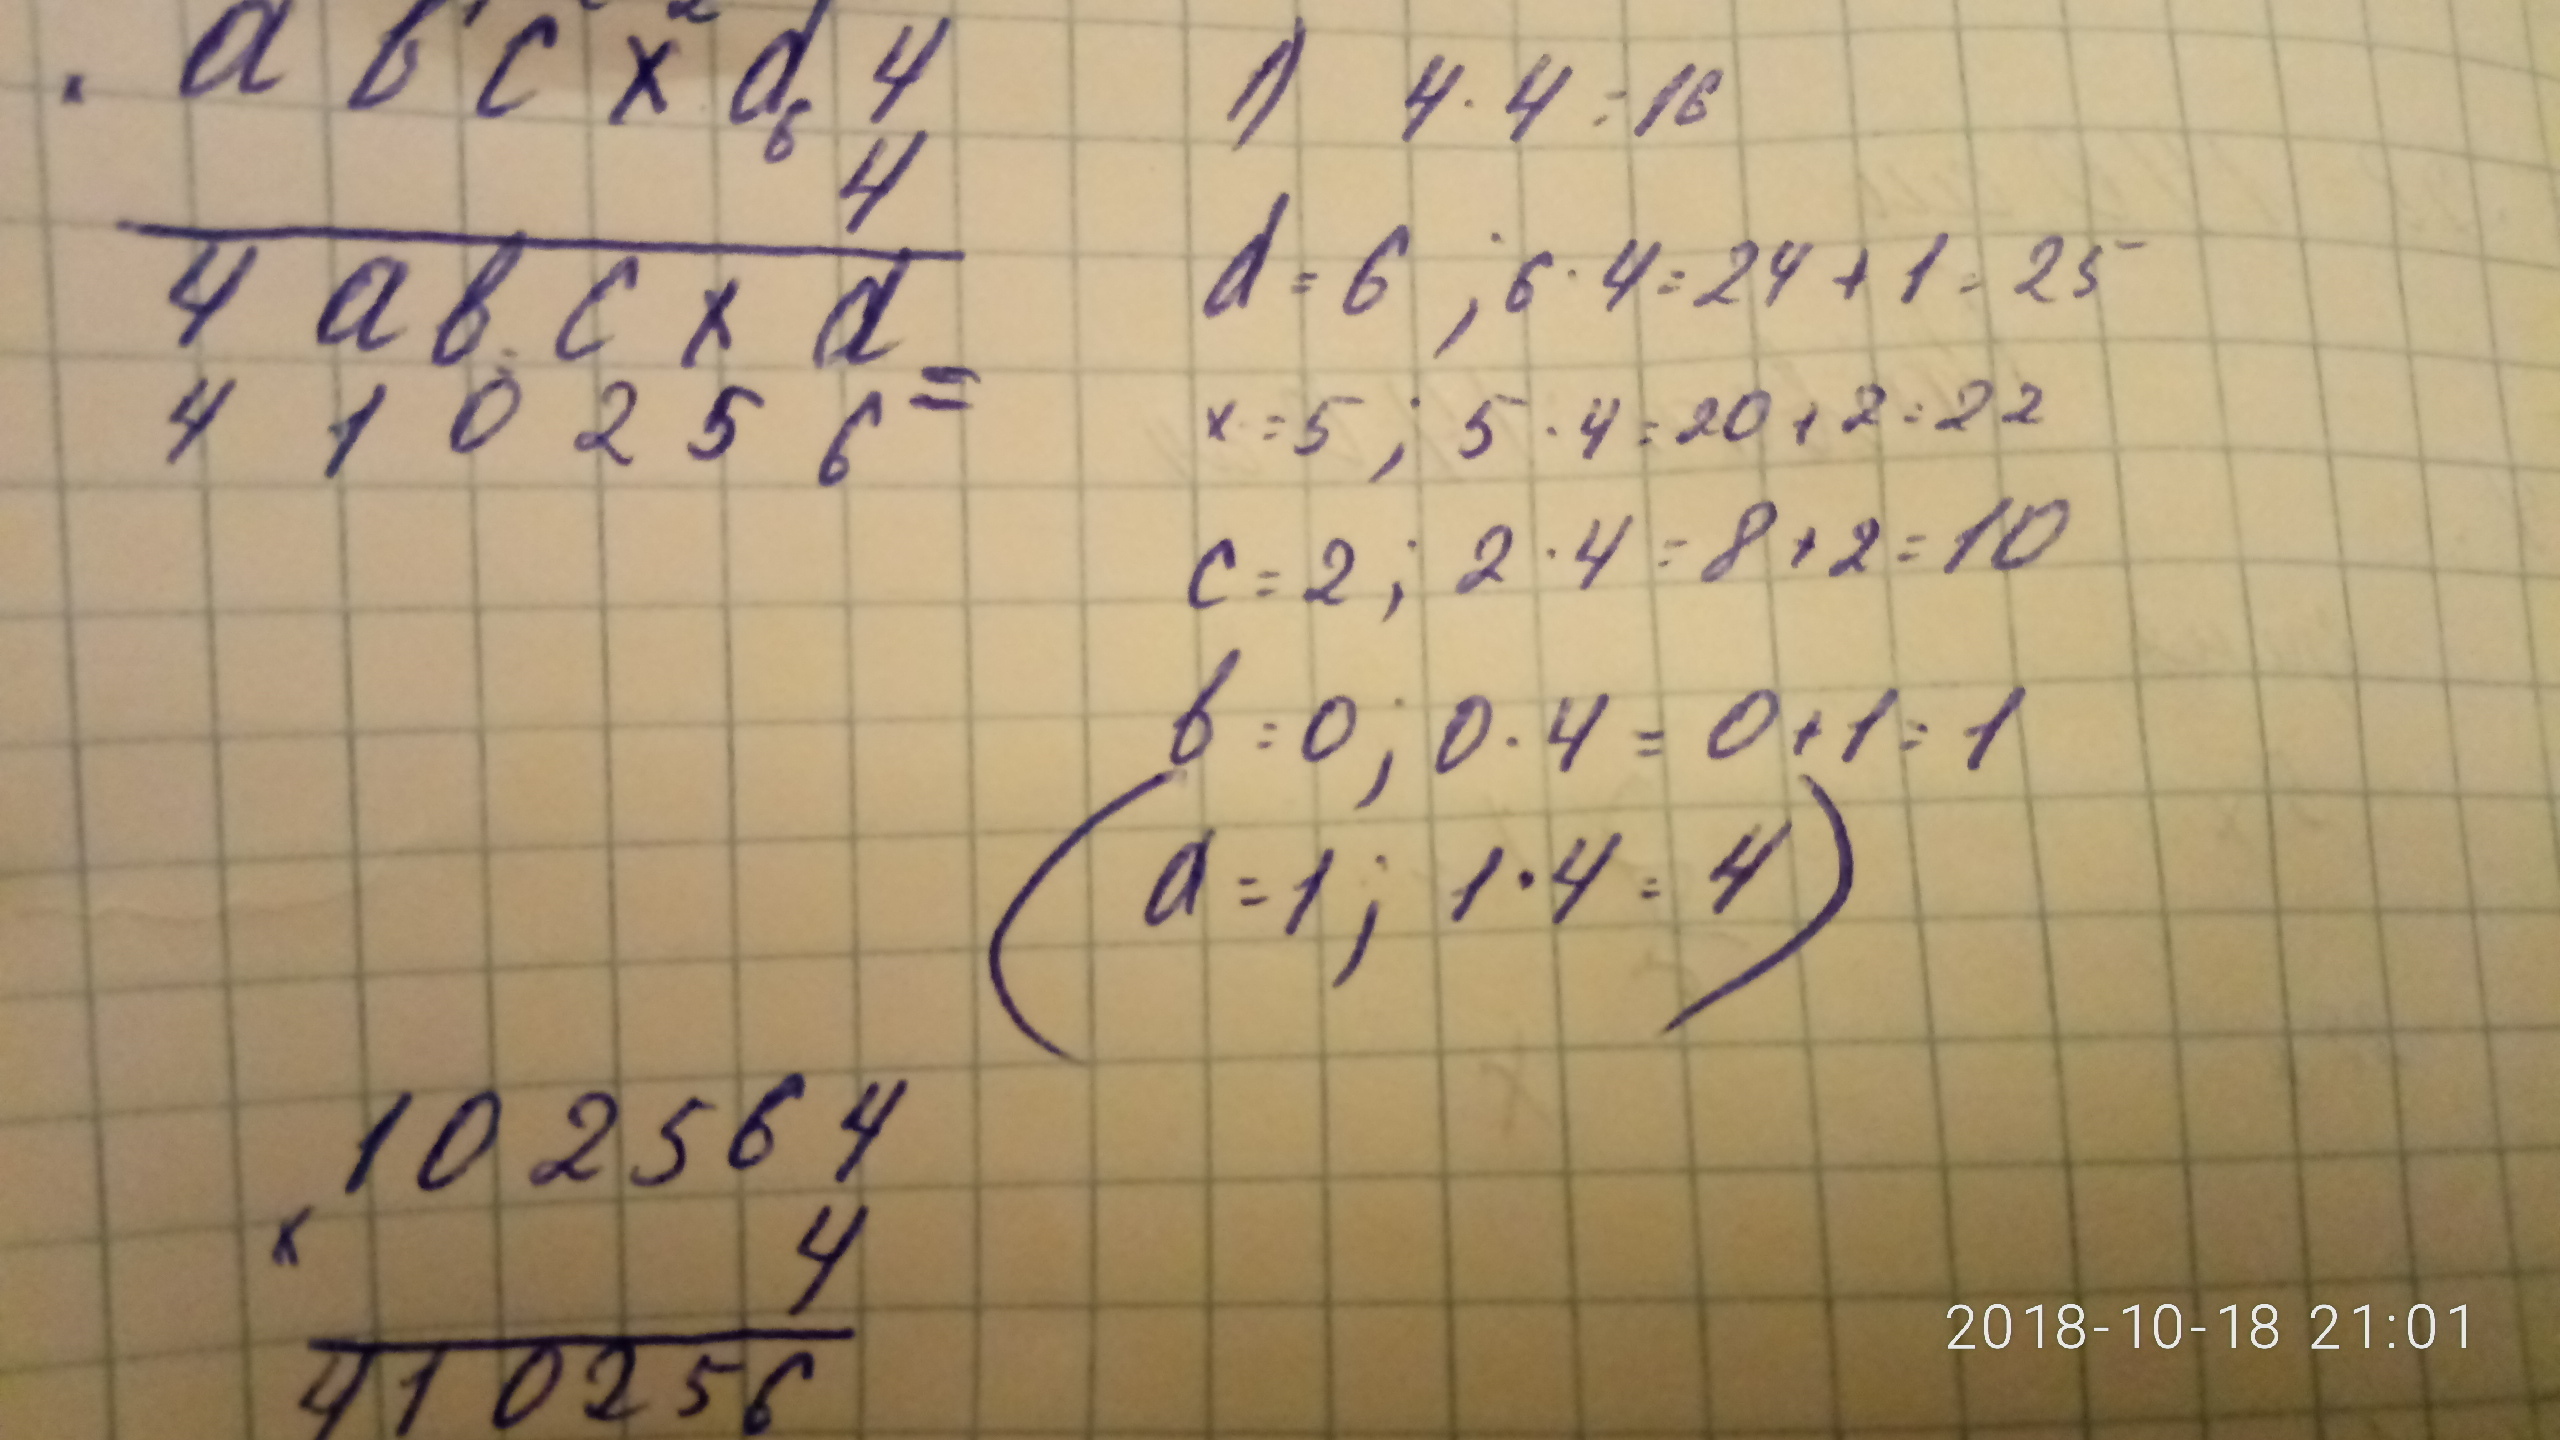 a b c x d 4
6
4
4 a b c x d =
4 1 0 2 5 6
1) 4 · 4 = 16
d = 6 ; 6 · 4 = 24 + 1 = 25
x = 5 ; 5 · 4 = 20 + 2 = 22
c = 2 ; 2 · 4 = 8 + 2 = 10
b = 0 ; 0 · 4 = 0 + 1 = 1
( a = 1 ; 1 · 4 = 4 )
1 0 2 5 6 4
x
4
4 1 0 2 5 6
2018-10-18 21:01